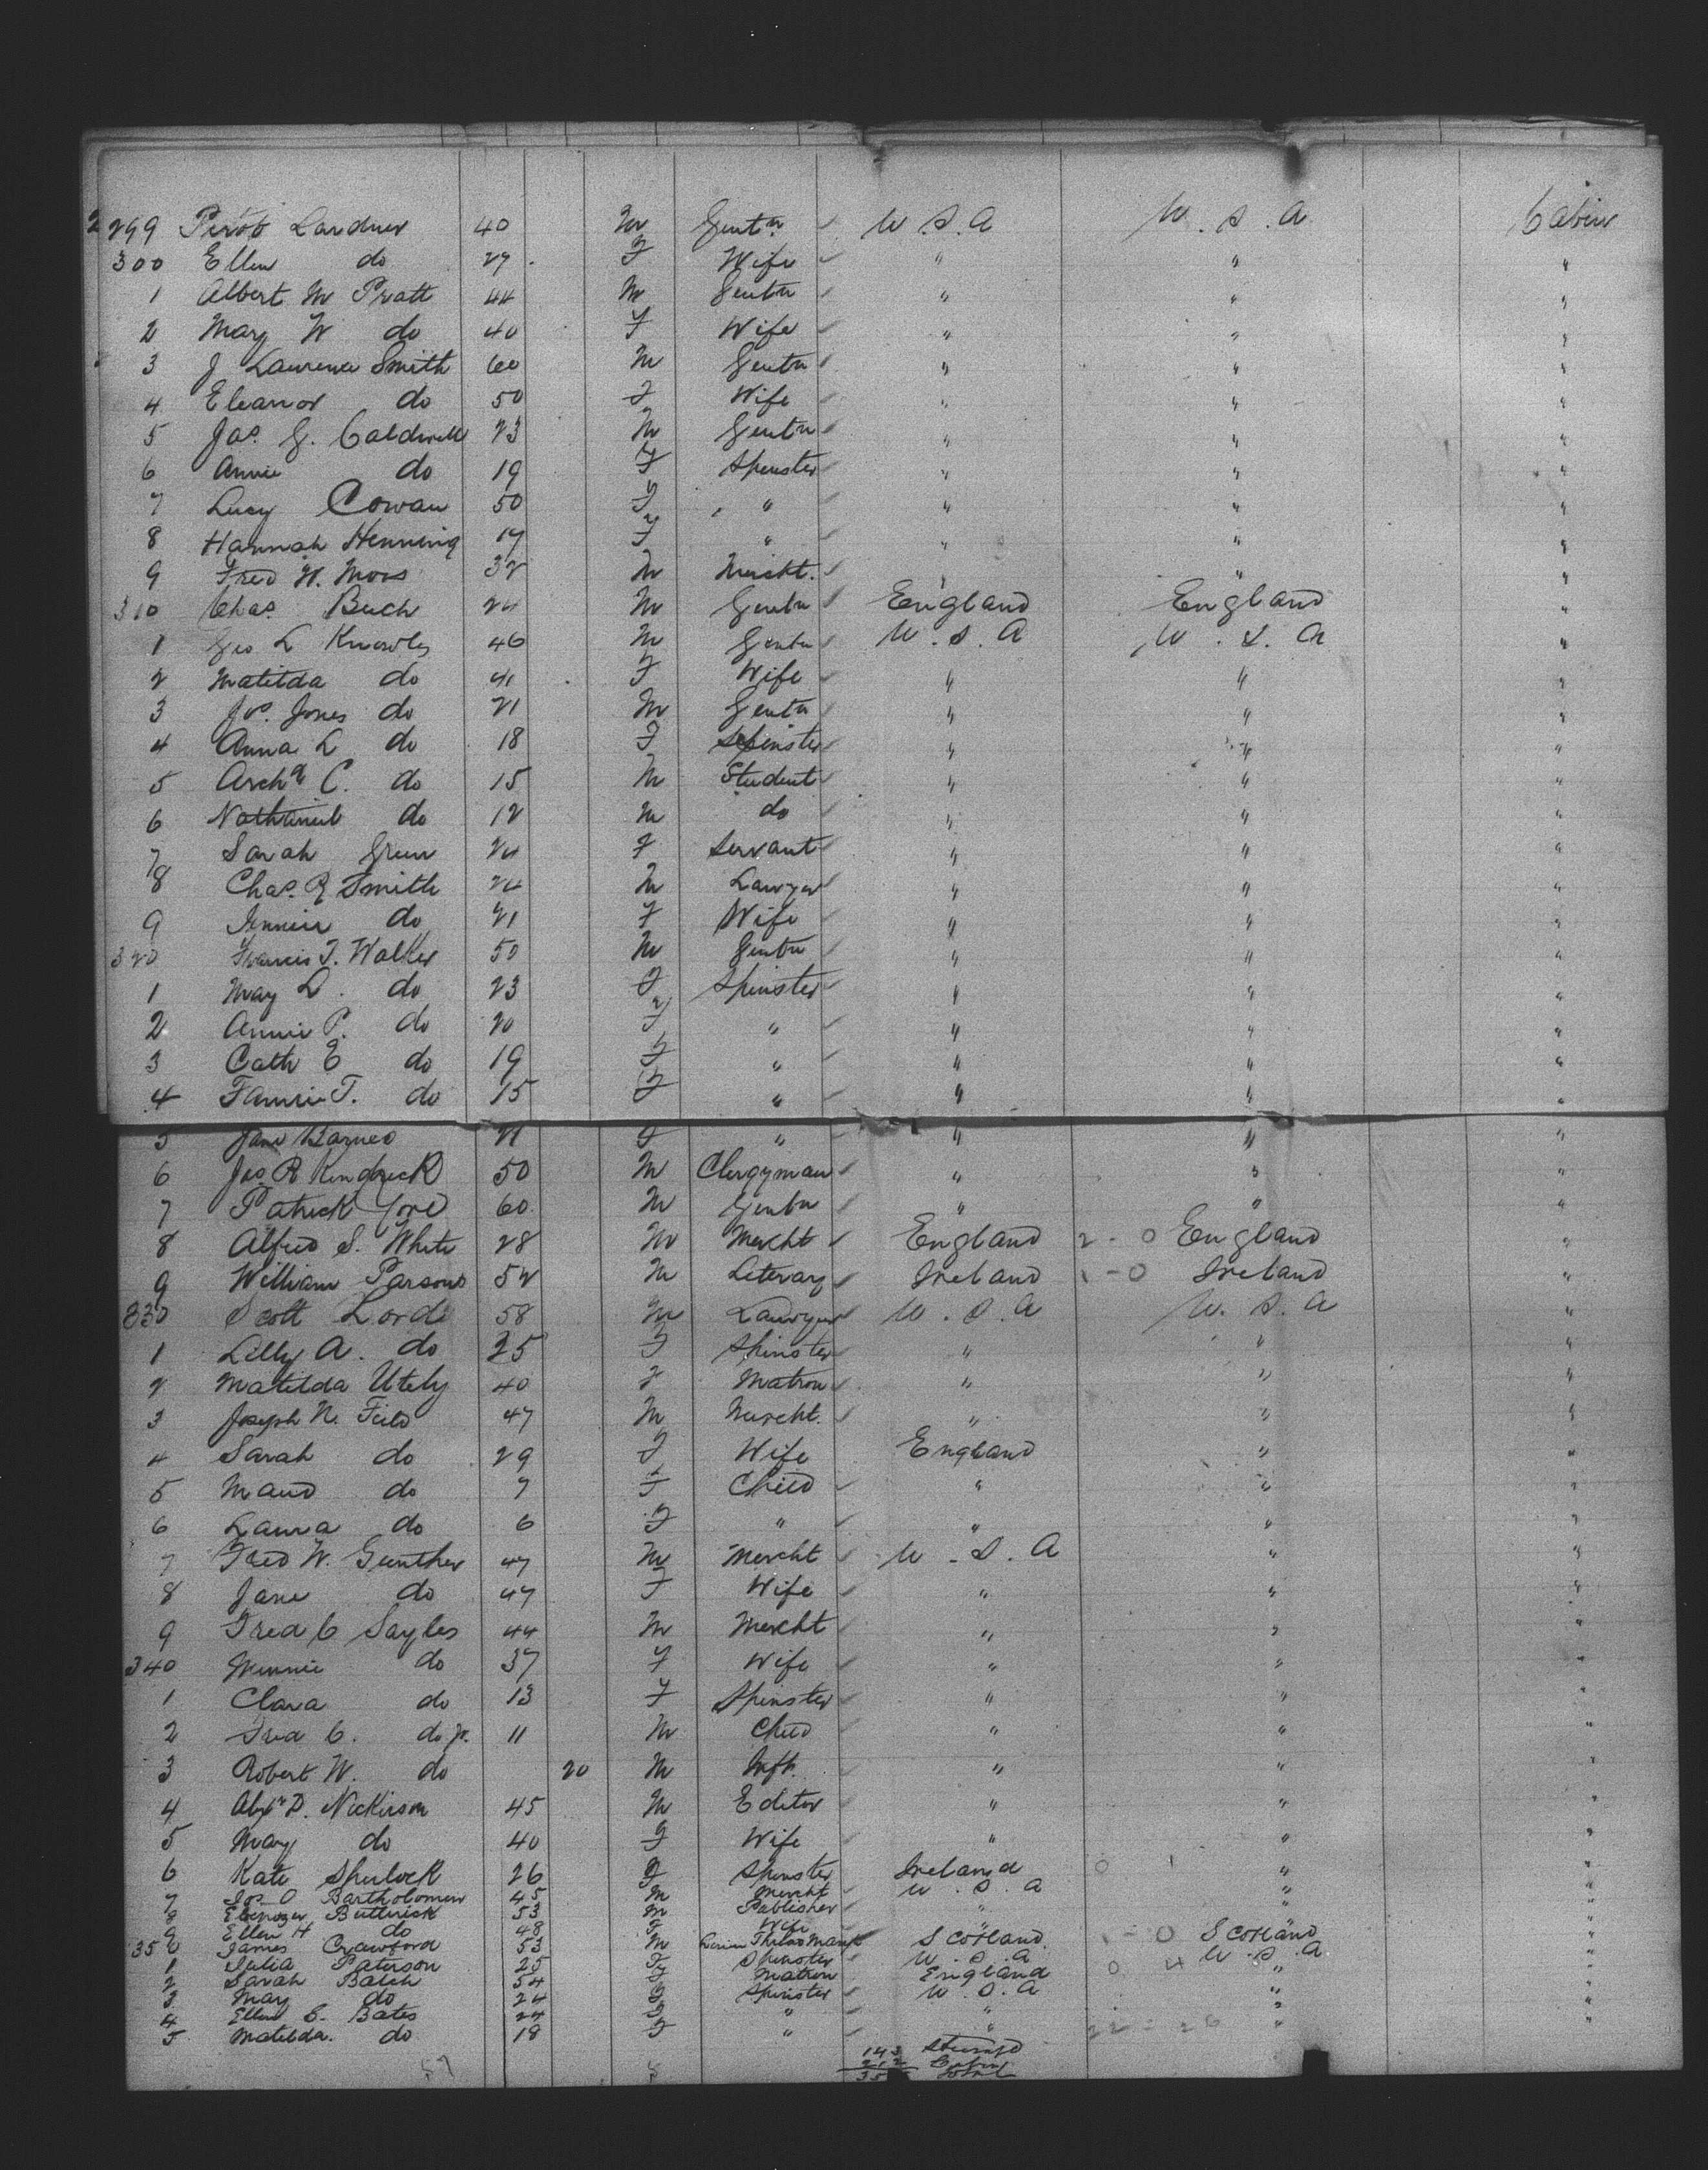 299 Perot Lardner 40 M Gentn U.S.A U.S.A Cabin
300 Ellen do 27 F Wife " " "
1 Albert M Pratt 44 M Gentn " " "
2 Mary W do 40 F Wife " " "
3 J Laurence Smith 60 M Gentn " " "
4 Eleanor do 50 F Wife " " "
5 Jas. G. Caldwell 23 M Gentn " " "
6 Annie do 19 F Spinster " " "
7 Lucy Cowan 50 F " " " "
8 Hannah Henning 17 F " " " "
9 Fred W. Moos 32 M Mercht. " " "
310 Chas. Buch 24 M Gentn England England "
1 Geo L Knowles 46 M Gentn U.S.A U.S.A "
2 Matilda do 41 F Wife " " "
3 Jos. Jones do 21 M Gentn " " "
4 Anna L do 18 F Spinster " " "
5 Archd C. do 15 M Student " " "
6 Nathaniel do 12 M do " " "
7 Sarah Green 24 F Servant " " "
8 Chas. R Smith 24 M Lawyer " " "
9 Jennie do 21 F Wife " " "
320 Francis T. Walker 50 M Gentn " " "
1 May L. do 23 F Spinster " " "
2 Annie P. do 20 F " " " "
3 Cath E do 19 F " " " "
4 Fannie T. do 15 F " " " "
5 Jane Barnes 21 F " " " "
6 Jas R Kendrick 50 M Clergyman " " "
7 Patrick Yore 60 M Gentn " " "
8 Alfred S. White 28 M Mercht England 2 - 0 England "
9 William Parsons 52 M Literary Ireland 1 - 0 Ireland "
330 Scott Lord 58 M Lawyer U.S.A U.S.A "
1 Lilly A. do 25 F Spinster " " "
2 Matilda Utely 40 F Matron " " "
3 Joseph N. Field 47 M Mercht. " " "
4 Sarah do 29 F Wife England " "
5 Maud do 7 F Child " " "
6 Laura do 6 F " " " "
7 Fred W. Gunther 47 M Mercht U.S.A " "
8 Jane do 47 F Wife " " "
9 Fred C Sayles 44 M Mercht " " "
340 Minnie do 37 F Wife " " "
1 Clara do 13 F Spinster " " "
2 Fred C. do Jr. 11 M Child " " "
3 Robert W. do 20 M Inft. " " "
4 Alxr D. Nickirson 45 M Editor " " "
5 May do 40 F Wife " " "
6 Kate Spurlock 26 F Spinster Ireland 0 1 " "
7 Jos O Bartholomew 45 M Mercht U.S.A " "
8 Ebenezer Butterick 53 M Publisher " " "
9 Ellen H do 48 F Wife " " "
350 James Crawford 53 M Scotland 1 - 0 Scotland "
1 Julia Paterson 25 F Spinster U.S.A U.S.A "
2 Sarah Balch 54 F Matron England 0 4 " "
3 May do 24 F Spinster U.S.A " "
4 Ellen C. Bates 24 F " " " "
5 Matilda. do 18 F " " 22 = 26 " "
57
143 Steerage
212 Cabin
Total